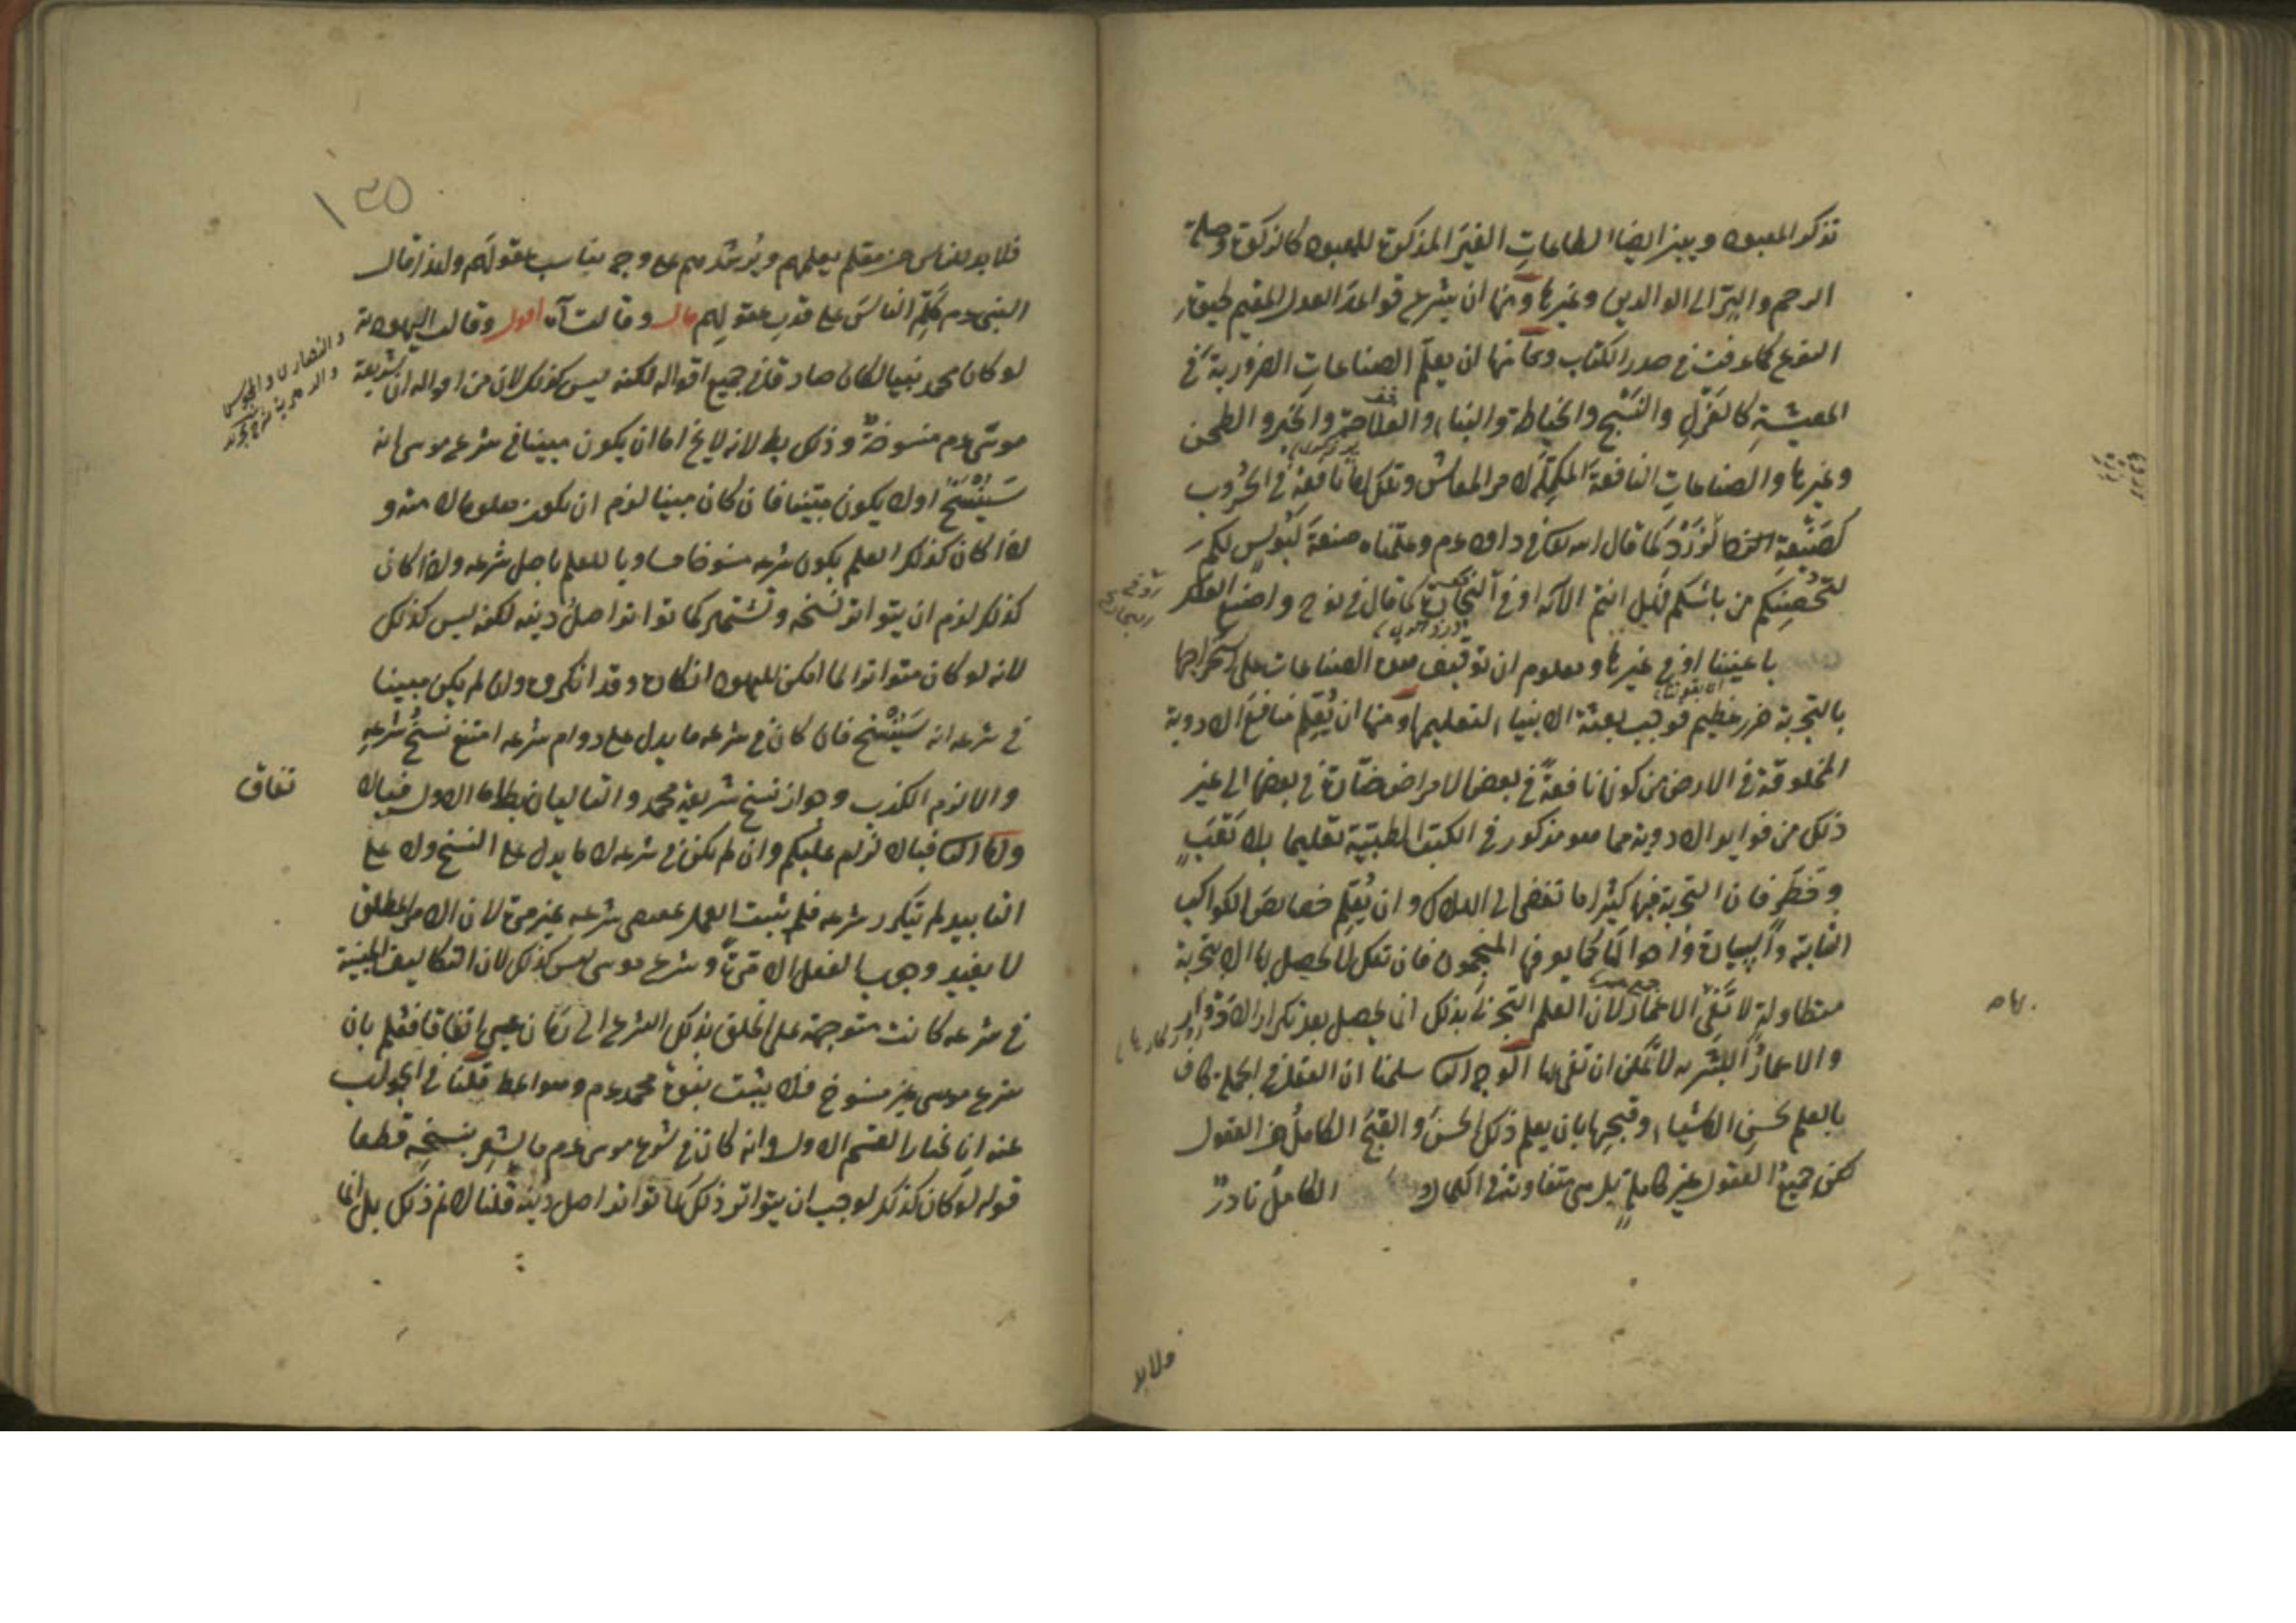 تذكر المعبود ويبين ايضا الطاعاتِ الغيرَ المذكورة للمعبود كالزكوة وصلة
الرحم والبِرّ الى الوالدين وغيرها ومنها ان يشرع قواعدَ العدل المقيم لحيوة
النوع كما عرفت في صدر الكتاب ومنها ان يعلّم الصناعاتِ الضرورية في
المعيشةِ كالغَزْلِ والنَسْجِ والخياطة والبناء والفلاحة والخبز والطحن
وغيرها والصناعاتِ النافعةَ المكمِّلَة لامر المعاش وتلك اما نافعة في الحُرُوب
كصَنْعة الزَرَدْ كما قال الله تعالى في داود عم وعلمناه صنعةَ لَبُوسٍ لكم
لتُحْصِنَكم من بأسكم فهل انتم الآية او في النجارة كما قال في نوح واصنع الفلك
باعيننا او في غيرها ومعلوم ان توقيف الصناعات على استخراجها
بالتجربة ضرر عظيم فوجب بعثة الانبياء لتعليمها ومنها ان يُعَلِّم منافعَ الادوية
المخلوقة في الارض من كونها نافعةً في بعض الامراض ضارّة في بعضها الى غير
ذلك من فوايد الادوية مما هو مذكور في الكتب الطبيّة تعليما بلا تَعَبٍ
وخَطَرٍ فان التجربة فيها كثيرا ما تفضى الى الهلاك وان يُعَلِّم خصايصَ الكواكب
الثابتة والسيارة واحوالَها كما يعرفها المنجمون فان تلك لا يحصل بها الا بتجربة
متطاولةٍ لا تَفِى الاعمارُ لان العلم التجربىّ بذلك انما يحصل بعد تكرار الادوار
والاعمارُ البَشَريه لا يمكن ان تفى بها الوجه الثالث سلمنا ان العقل في الجملة كاف
بالعلم بحسن الاشياء وقبحِها بان يعلم ذلك الحسنَ والقبحَ الكاملُ من العقول
لكن جميعُ العقول غير كاملةٍ بل هى متفاوتة في الكمال و الكاملُ نادرٌ
فلابد
١٣٥
فلابد للناس من معلم يعلمهم ويُرشدهم على وجه يناسب عقولَهم ولهذا قال
النبى عم كَلِّم الناسَ على قدرِ عقولِهم قال وقالت آه اقول وقالت اليهود
والنصارى والمجوس
لو كان محمد نبيا لكان صادقا في جميع اقواله لكنه ليس كذلك لان من اقواله ان شريعة
موسى عم منسوخةٌ وذلك بط لانه لا يخ اما ان يكون مبينا في شرع موسى انه
سَيُنْسَخُ او لا يكون مبيَّنا فان كان مبينا لزم ان يكون معلوما لامته و
اذا كان كذلك العلم بكون شرعه منسوخا مساويا للعلم باصل شرعه واذا كان
كذلك لزم ان يتواتر نسخه وتشتهر كما تواتر اصلُ دينه لكنه ليس كذلك
لانه لو كان متواترا لما امكن لليهود انكاره وقد انكروه وان لم يكن مبينا
في شرعه انه سَيُنْسَخ فان كان في شرعه ما يدل على دوام شرعه امتنع نسخُ شرعِه
والا لزم الكذب وجواز نسخ شريعة محمد والتاليان بطلا اما الاول فبالا
تفاق
واما الثانى فبانه لزم عليكم وان لم يكن في شرعه لا ما يدل على النسخ ولا على
التابيد لم يتكرر شرعه فلم يثبت العمل بمقتضى شرعه غيرَ مرة لان الامر المطلق
لا يفيد وجوب الفعل الا مرةً وشرع موسى ليس كذلك لان التكاليف المبنية
في شرعه كانت متوجهة على الخلق بذلك الشرع الى زمان عيسى اتفاقا فعلم بان
شرع موسى غير منسوخ فلا يثبت نبوة محمد عم وهو المط قلنا في الجواب
عنه انا نختار القسم الاول وانه كان في شرع موسى عم ما يُشعِر بنسخِه قطعا
قوله لو كان كذلك لوجب ان يتواتر ذلك كما تواتر اصل دينه قلنا لا نم ذلك بل انما